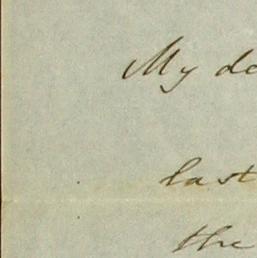 My de
last
the